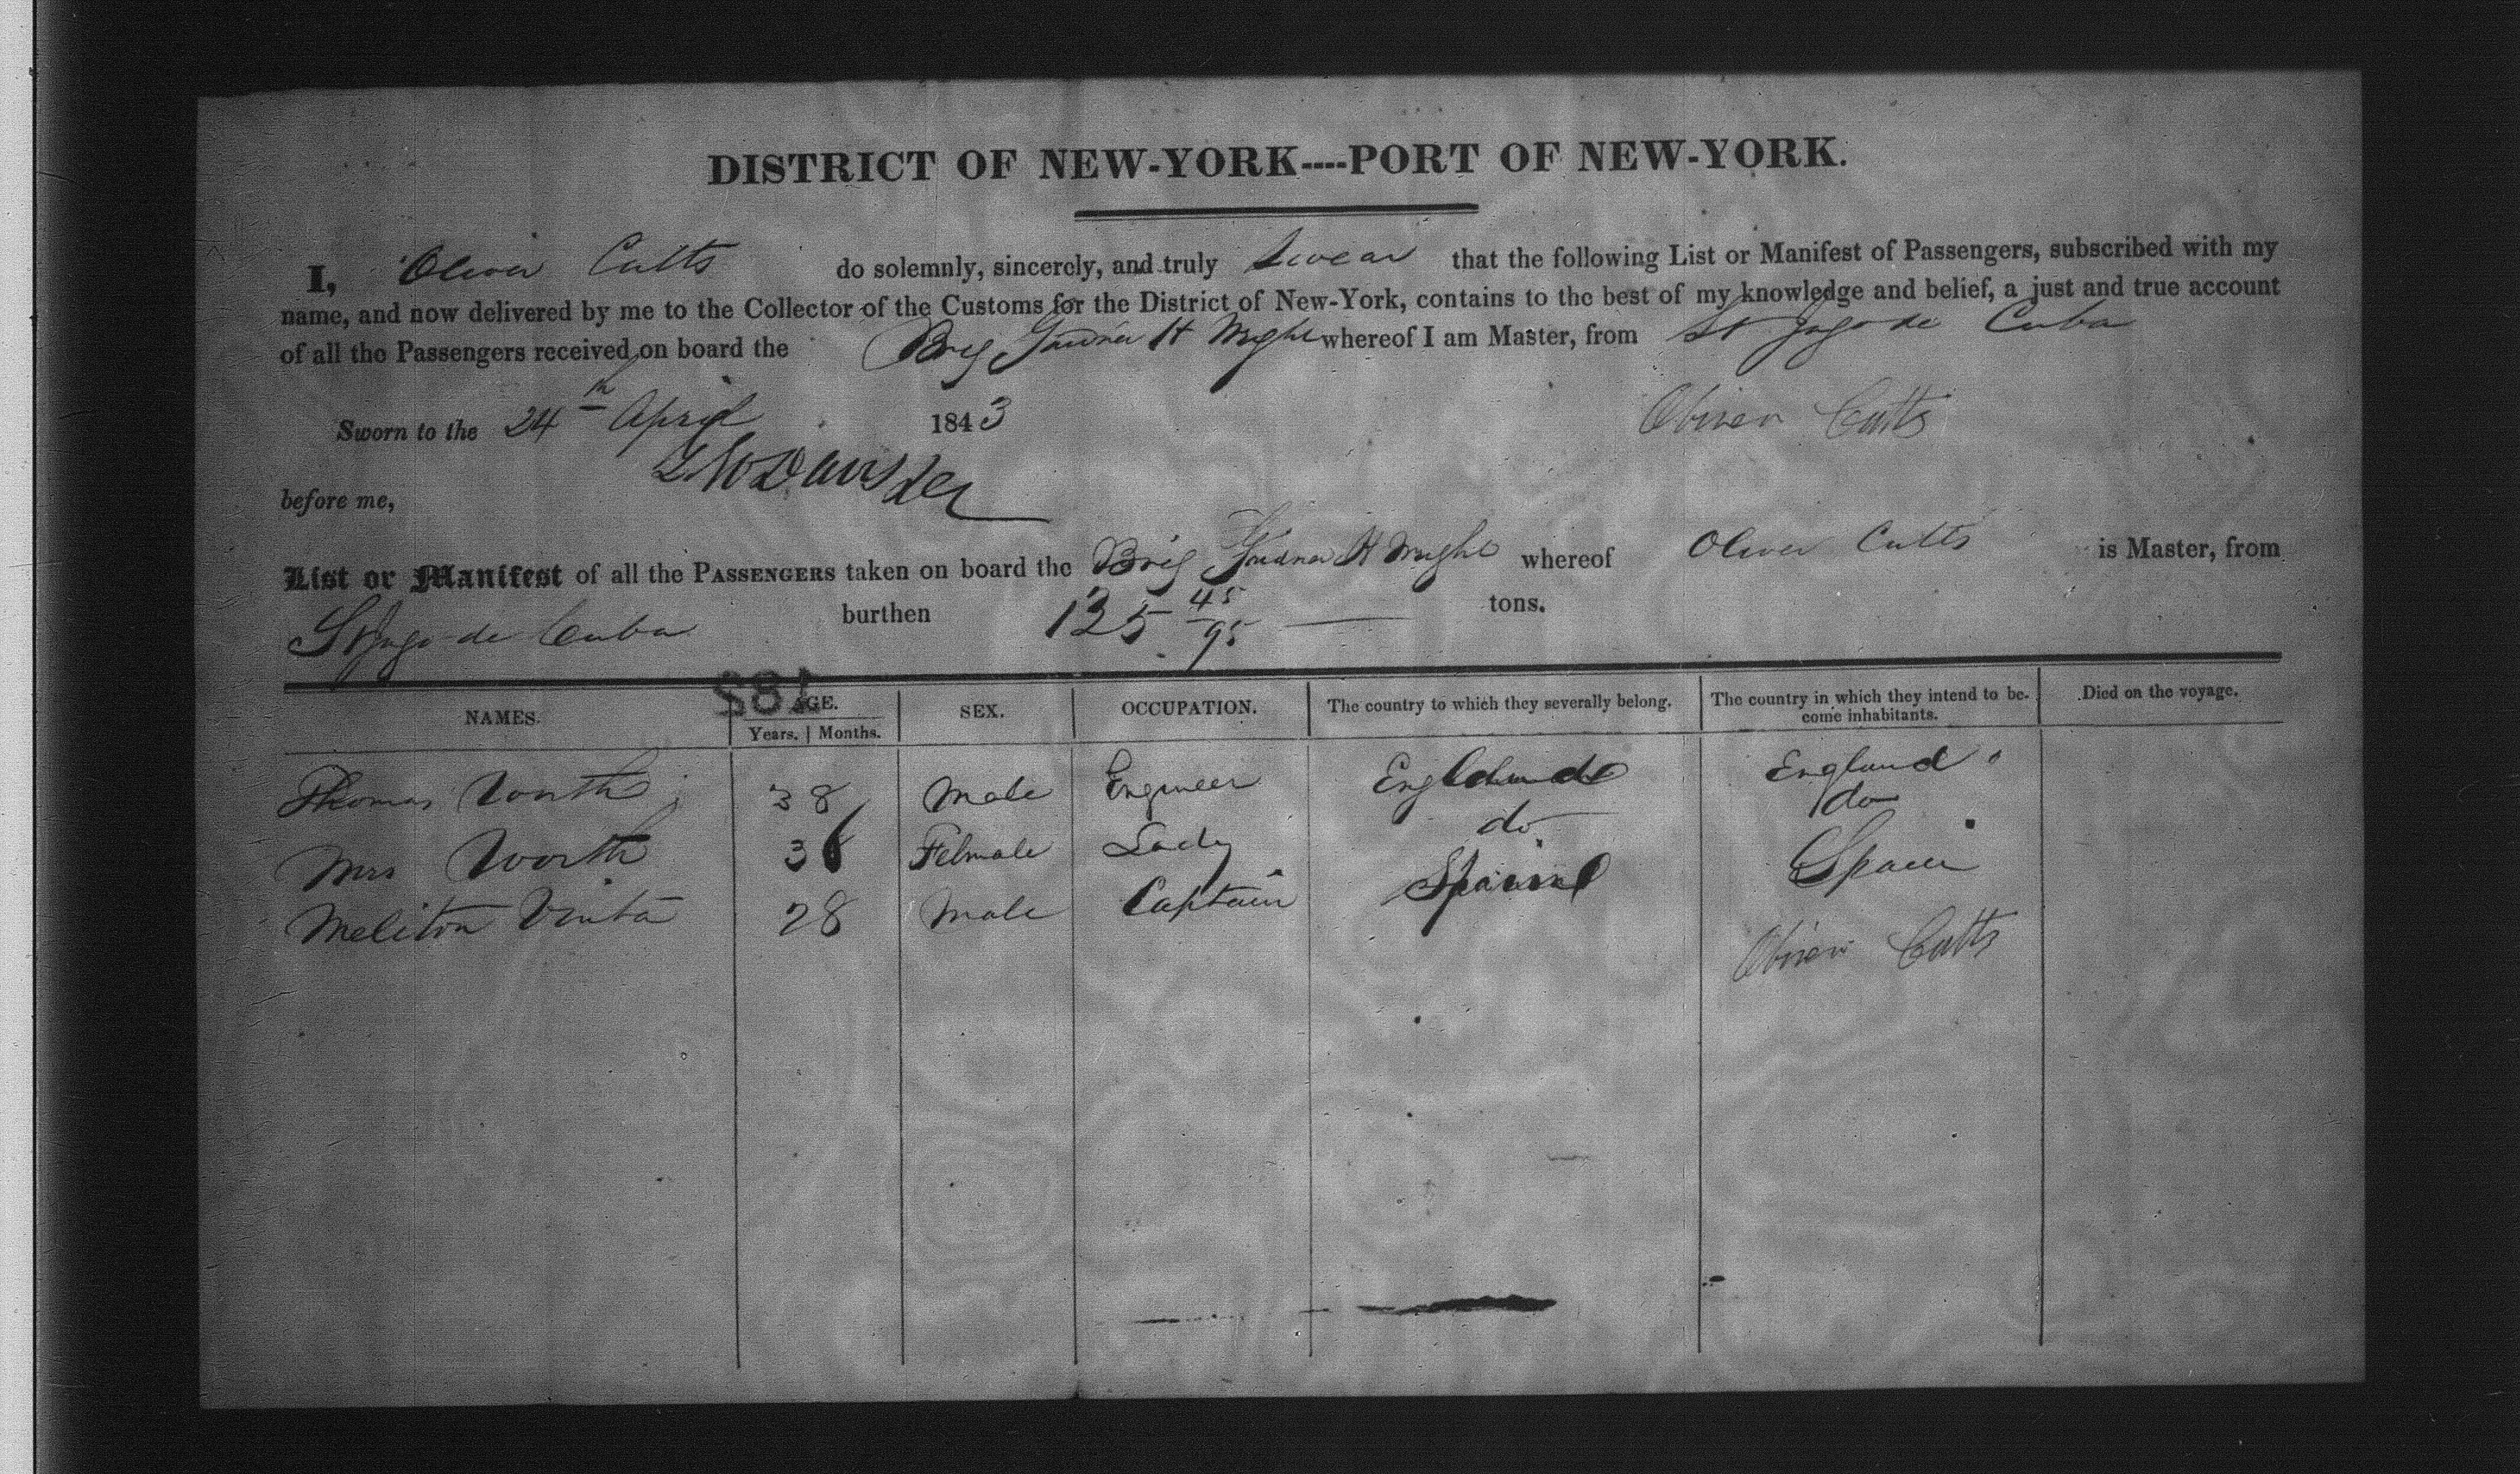 DISTRICT OF NEW-YORK----PORT OF NEW-YORK.
I, Oliver Cutts do solemnly, sincerely, and truly Swear that the following List or Manifest of Passengers, subscribed with my
name, and now delivered by me to the Collector of the Customs for the District of New-York, contains to the best of my knowledge and belief, a just and true account
of all the Passengers received on board the Brig H Wright whereof I am Master, from St Jago de Cuba
Sworn to the 24th April 1843 Cutts
before me,
List or Manifest of all the PASSENGERS taken on board the Brig H Wright whereof Oliver Cutts is Master, from
St Jago de Cuba burthen 135 45/95 tons.
182
NAMES. AGE. SEX. OCCUPATION. The country to which they severally belong. The country in which they intend to be- Died on the voyage.
Years. | Months. come inhabitants.
Thomas Worth 38 Male Engineer England England
Mrs Worth 36 Female Lady do do
Meliton 28 Male Captain Spain Spain
Cutts